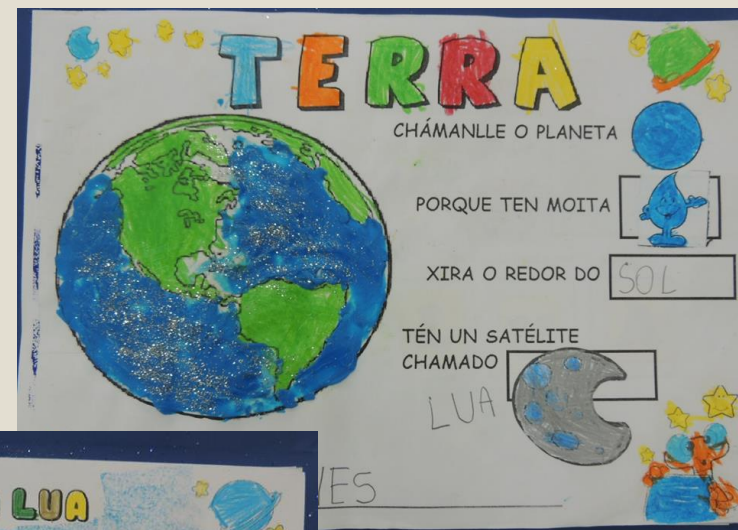 TERRA
CHÁMANLLE O PLANETA
PORQUE TEN MOITA
XIRA O REDOR DO SOL
TÉN UN SATÉLITE
CHAMADO
LUA
LUA